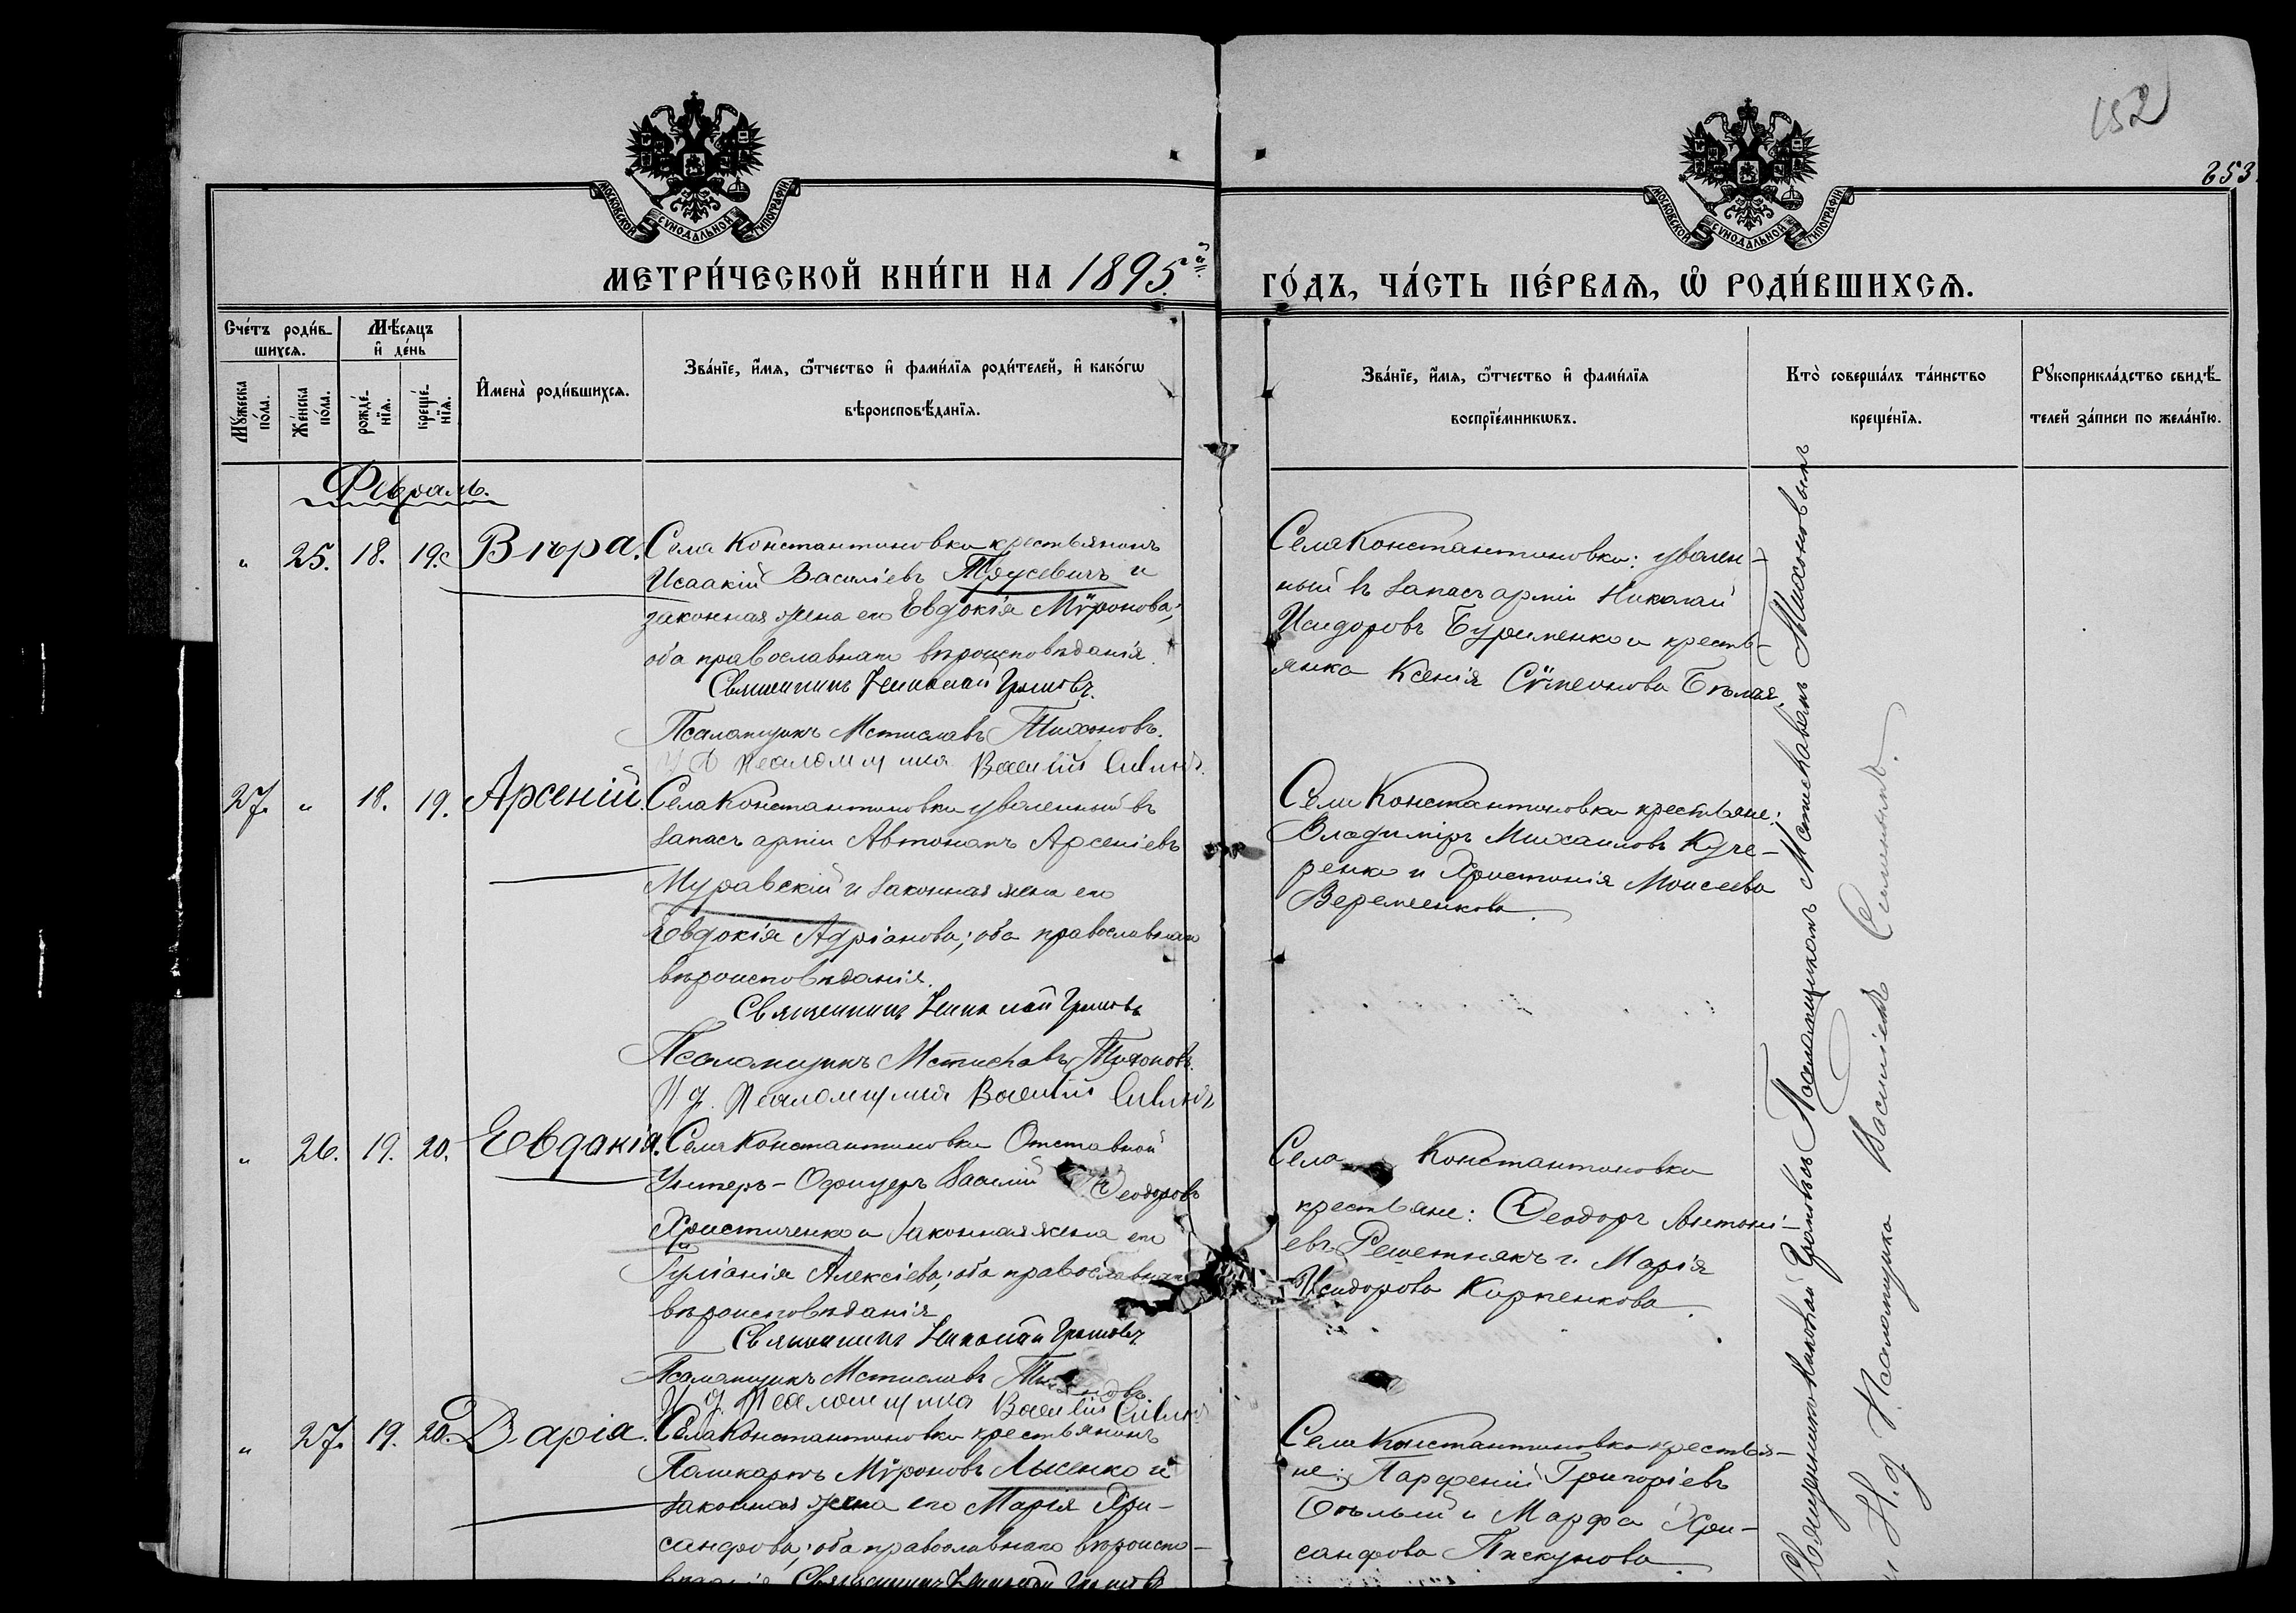 152
253.
МОСКОВСКОЙ СѴНОДАЛЬНОЙ ТИПОГРАФІИ
МОСКОВСКОЙ СѴНОДАЛЬНОЙ ТИПОГРАФІИ
МЕТРИ́ЧЕСКОЙ КНИ́ГИ НА 1895.й
ГО́ДЪ, ЧА́СТЬ ПЕ́РВАѦ, Ѡ РОДИ́ВШИХСѦ.
Сче́тъ роди́в-
шихсѧ.
Мꙋ́жеска по́ла.
Же́нска по́ла.
Мѣ́сяцъ
и҆ де́нь
рожде́-
нїѧ.
креще́-
нїѧ.
И҆мена̀ роди́вшихсѧ.
Зва́нїе, и҆́мѧ, ѻ҆́тчество и҆ фами́лїѧ роди́телей, и҆ како́гѡ
вѣроисповѣ́данїѧ.
Зва́нїе, и҆́мѧ, ѻ҆́тчество и҆ фами́лїѧ
воспрїе́мникѡвъ.
Кто̀ соверша́лъ та́инство
креще́нїѧ.
Рꙋкоприкла́дство свидѣ́-
телей за́писи по жела́нїю.
Февраль.
" 25. 18. 19. Вѣра.
Села Константиновки крестьянинъ
Исаакій Василіевъ Трусевичъ и
законная жена его Евдокія Мѵронова;
оба православнаго вѣроисповѣданія.
Священникъ Николай Громовъ.
Псаломщикъ Мстиславъ Тихоновъ.
И д псаломщика Василій
Села Константиновки: уволен-
ный въ запасъ арміи Николай
Исидоровъ Буряменко и кресть-
янка Ксенія Сѵмеонова Бѣлая.
27. " 18. 19. Арсеній.
Села Константиновки уволенный въ
запасъ арміи Автономъ Арсеніевъ
Муравскій и законная жена его
Евдокія Адріанова; оба православнаго
вѣроисповѣданія.
Священникъ Николай Громовъ
Псаломщикъ Мстиславъ Тихоновъ.
И д. псаломщика Василій
Села Константиновки крестьяне:
Владиміръ Михаиловъ Куче-
ренко и Христинія Моисеева
Веременкова.
" 26. 19. 20. Евдокія.
Села Константиновки Отставной
Унтеръ-Офицеръ Василій Ѳеодоровъ
Христиченко и законная жена его
Іуліанія Алексіева; оба православнаго
вѣроисповѣданія
Священникъ Николай Громовъ
Псаломщикъ Мстиславъ Тихоновъ.
И д. псаломщика Василій
Села Константиновки
крестьяне: Ѳеодоръ Антоні-
евъ Решетнякъ и Марія
Исидорова Кирпенкова.
" 27. 19. 20. Дарія.
Села Константиновки крестьянинъ
Поликарпъ Мѵроновъ Лысенко и
законная жена его Марія Хри-
санфова; оба православнаго вѣроиспо-
вѣданія Священникъ Николай Громовъ
Села Константиновки крестья-
не: Парфеній Григоріевъ
Бѣлый и Марфа Хри-
санфова Пискунова.
Священникъ Николай Громовъ съ Псаломщикомъ Мстиславомъ Тихоновымъ
и И. д. Псаломщика Василіемъ